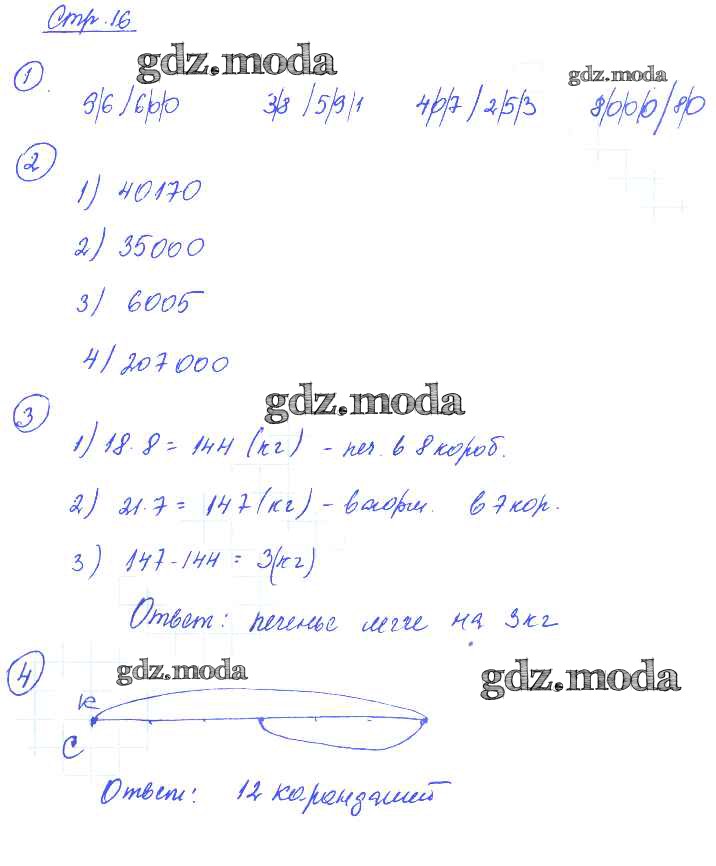 Стр. 16
gdz.moda
1.
gdz.moda
9|6/6|0|0 3|8/5|9|1 4|0|7/2|5|3 8|0|0|0/8|0
2
1) 40170
2) 35000
3) 6005
4) 207000
gdz.moda
3
1) 18·8 = 144 (кг) - печ. в 8 короб.
2) 21·7 = 147 (кг) - в 7 кор.
3) 147-144 = 3(кг)
Ответ: печенье легче на 3 кг
4
gdz.moda
gdz.moda
К
С
Ответ: 12 карандашей